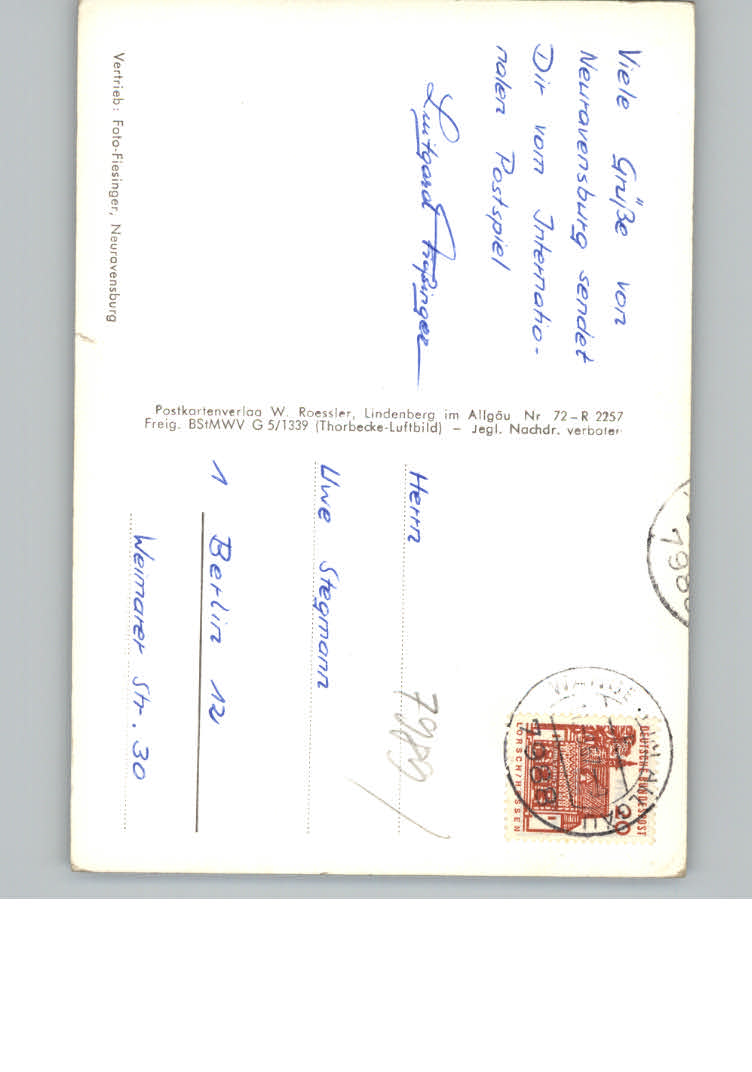 Viele Grüße von
Neuravensburg sendet
Dir vom Internatio-
nalen Postspiel
Luitgard
Vertrieb: Foto-Fiesinger, Neuravensburg
Postkartenverlag W. Roessler, Lindenberg im Allgäu Nr 72-R 2257
Freig. BStMWV G 5/1339 (Thorbecke-Luftbild) - Jegl. Nachdr. verboten
Herrn
Uwe Stegmann
1 Berlin 12
Weimarer Str. 30
7989
DEUTSCHE BUNDESPOST
20
LORSCH/HESSEN
WANGEN IM ALLGÄU
7988